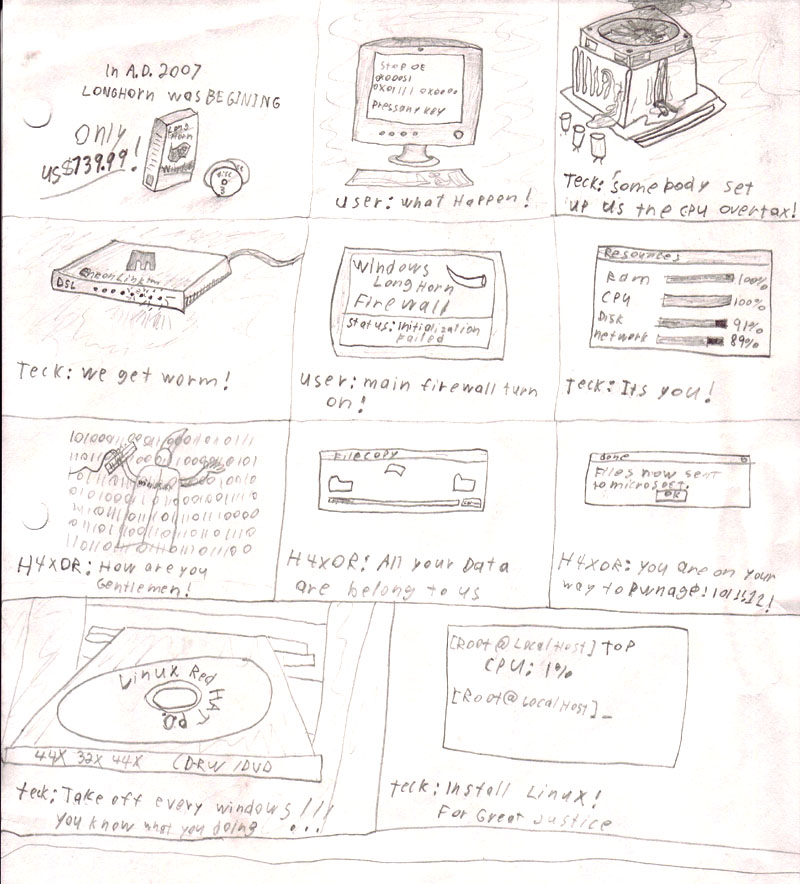 In A.D. 2007
LONGHorn was BEGINING
Only
US$739.99!
Long
Horn
User: what Happen!
STOP OE
Press any key
Teck: Somebody set
up us the CPU overtax!
DSL
Teck: we get worm!
Windows
LongHorn
Firewall
Status: Initialization
Failed
User: main firewall turn
on!
Resources
Ram 100%
CPU 100%
Disk 91%
network 89%
Teck: Its you!
H4X0R: How are you
Gentlemen!
FileCopy
H4X0R: All your Data
are belong to us
done
Files now sent
to microsoft.
OK
H4X0R: You are on your
way to Pwnage!
Linux Red
Hat
44X 32X 44X CDRW/DVD
teck: Take off every windows!!!
You know what you doing ...
[Root@LocalHost] TOP
CPU: 1%
[Root@LocalHost]_
teck: Install Linux!
For Great Justice